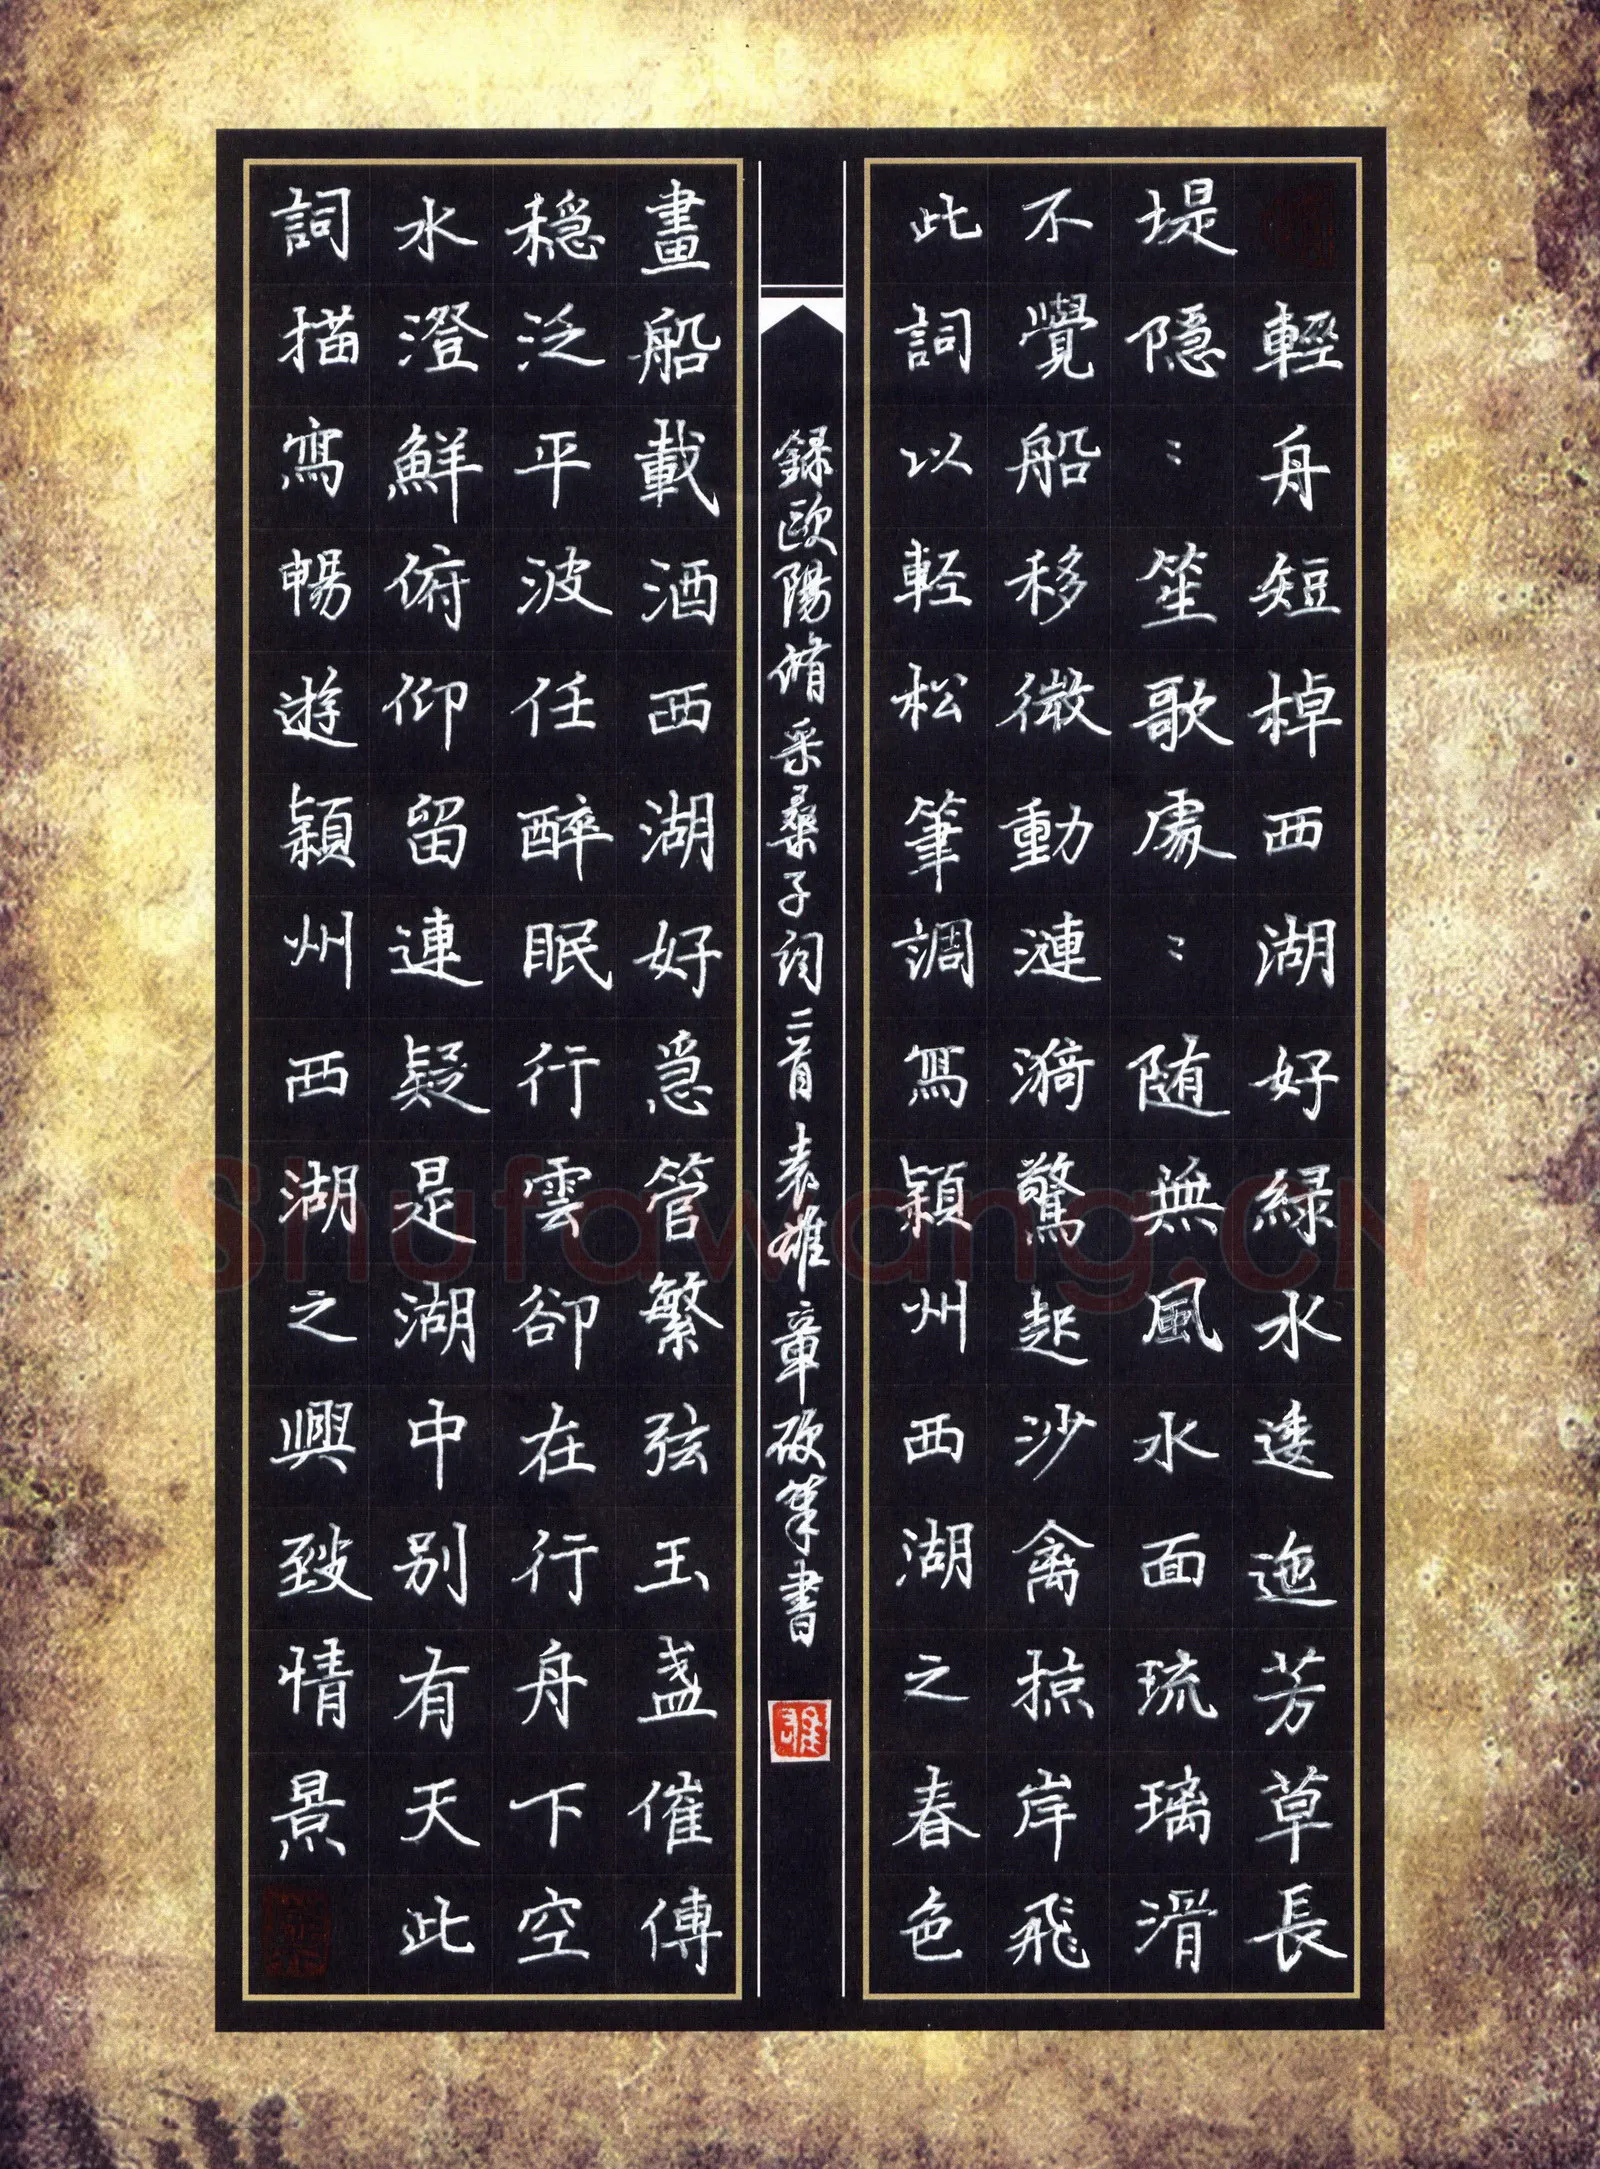 輕舟短棹西湖好緑水逶迤芳草長
堤隱：笙歌處：随無風水面琉璃滑
不覺船移微動漣漪驚起沙禽掠岸飛
此詞以輕松筆調寫穎州西湖之春色
録歐陽脩采桑子詞二首袁雄章硬筆書
畫船載酒西湖好急管繁弦玉盞催傳
穩泛平波任醉眠行雲卻在行舟下空
水澄鮮俯仰留連疑是湖中别有天此
詞描寫暢遊穎州西湖之興致情景
Shufawang.CN